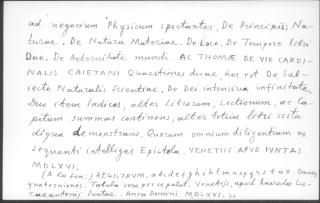 ad negocium Physicum spectantes, De Principiis Na-
turae. De Natura Materiae. De Loco, De Tempore libri
Duo. De Aeternitate mundi. AC THOMAE DE VIO CARDI-
NALIS CAIETANI Quaestiones duae, hoc est De Sub-
iecto Naturalis Scientiae, De Dei intensiva infinitate.
Duo item Indices, alter Librorum, Lectionum, ac Ca-
pitum summas continens, alter totius libri scitu
digna demonstrans. Quorum omnium diligentiam ex
sequenti intelliges Epistola. VENETIIS APUD IUNTAS.
MDLXVI.
(A la fin:) REGISTRUM, a b c d e f g h i k l m n o p q r s t u x. Omnes
quaterniones. Tabula vero per se patat. Venetijs, apud haeredes Lu-
caeantonij Iuntae. Anno Domini MDLXVI.